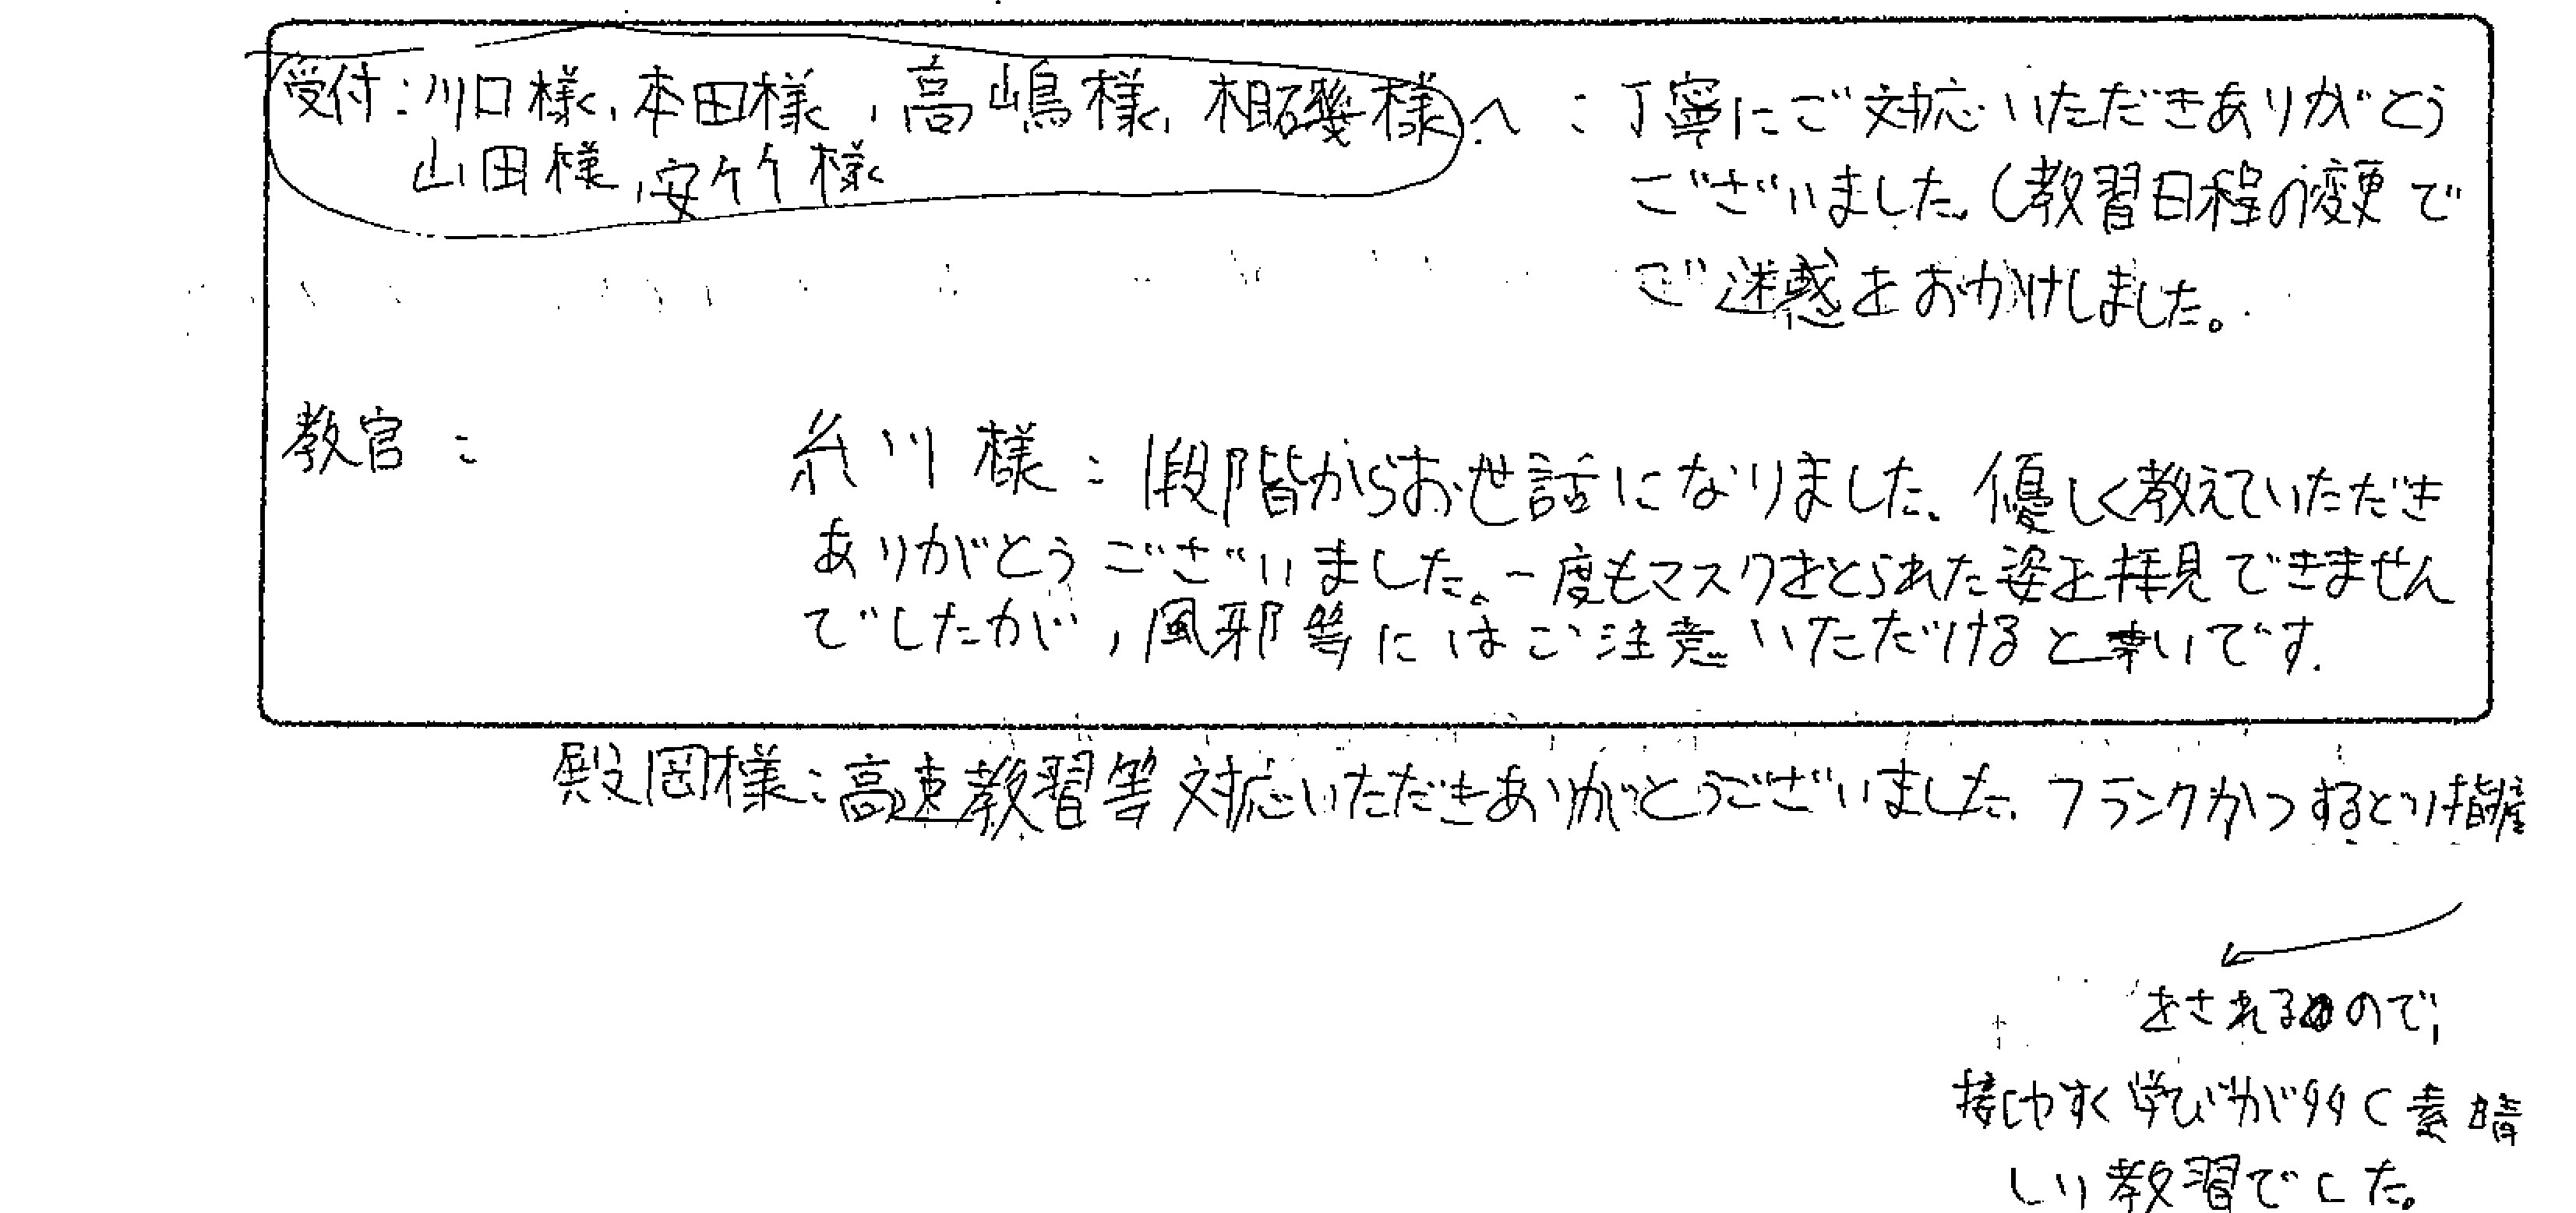 受付：川口様、本田様、高嶋様、相磯様へ：丁寧にご対応いただきありがとう
山田様、安竹様
ございました。(教習日程の変更で
ご迷惑をおかけしました。
教官：
糸川様：1段階からお世話になりました。優しく教えていただき
ありがとうございました。一度もマスクをとられた姿を拝見できません
でしたが、風邪等にはご注意いただけると幸いです。
殿岡様：高速教習等対応いただきありがとうございました。フランクかつするどい指摘
をされるので、
接しやすく学びが多く素晴
しい教習でした。